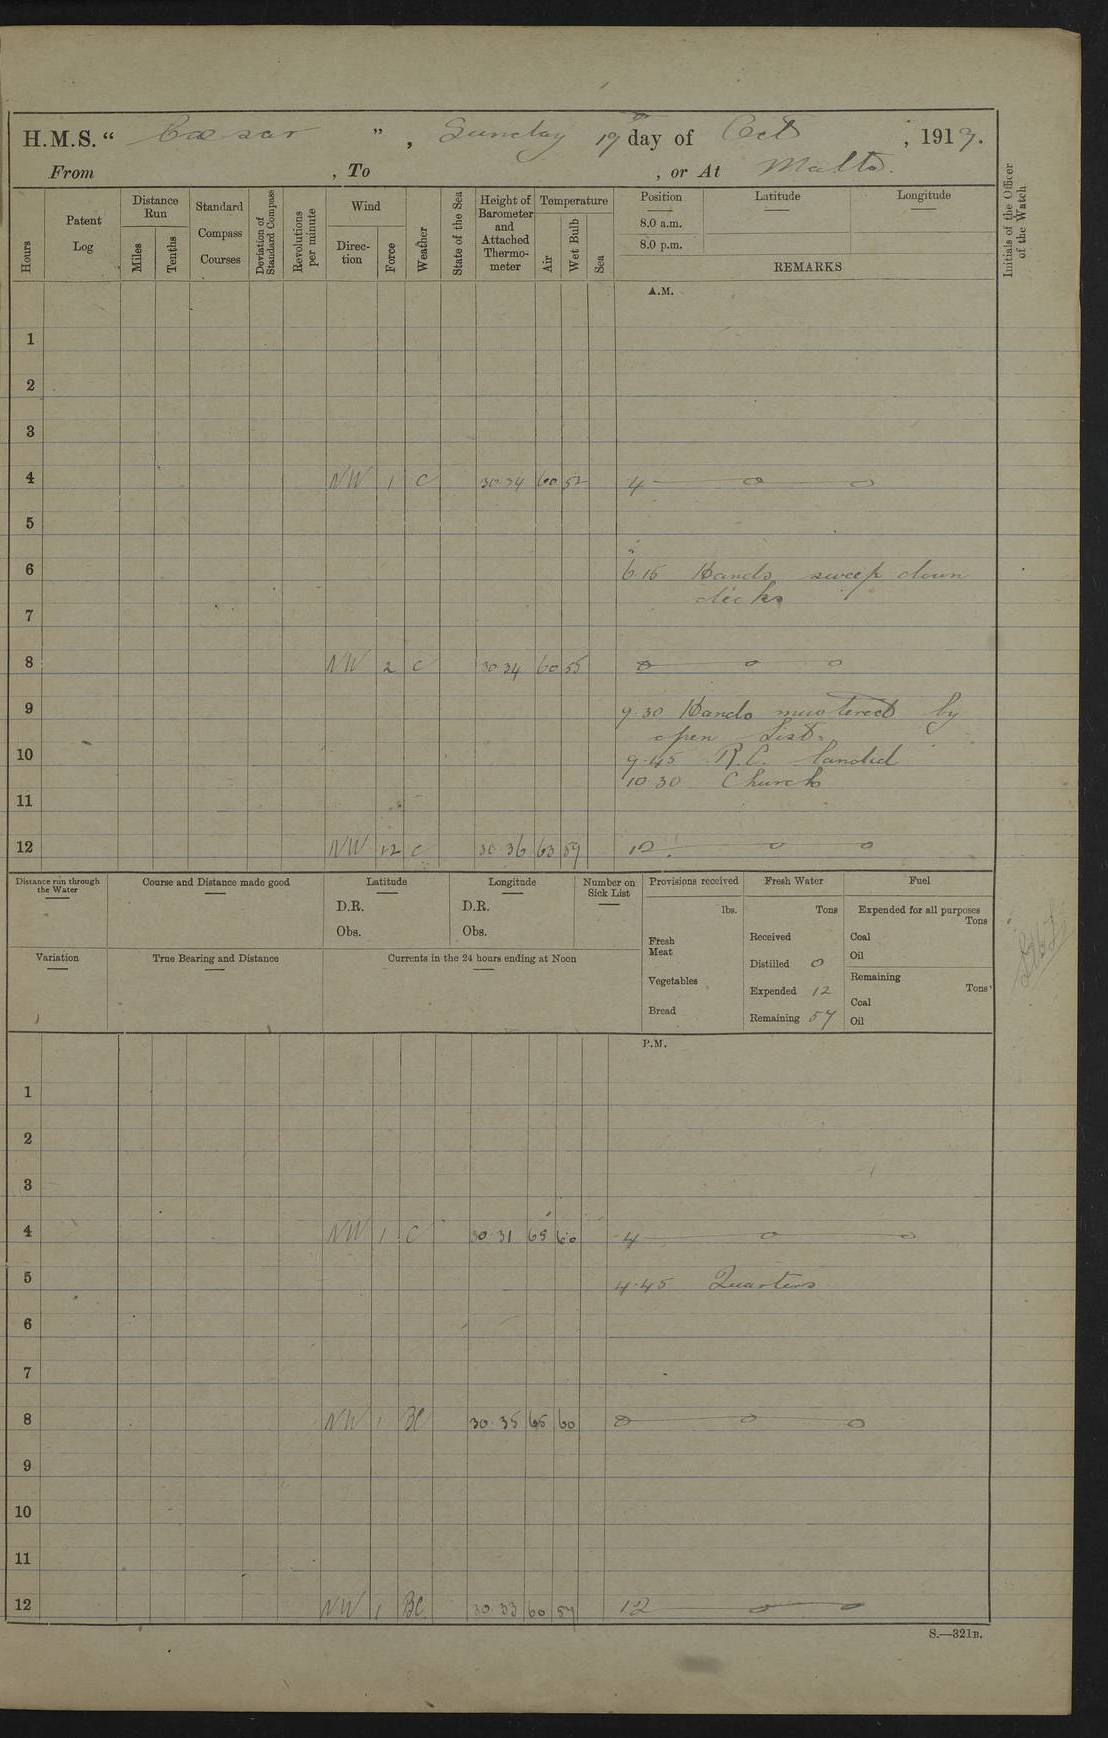 H.M.S. "Cæsar", Sunday 19th day of Oct, 1919.
From , To , or At Malta.
Hours
Patent Log
Distance Run
Miles
Tenths
Standard Compass Courses
Deviation of Standard Compass
Revolutions per minute
Wind
Direc-tion
Force
Weather
State of the Sea
Height of Barometer and Attached Thermo-meter
Temperature
Air
Wet Bulb
Sea
Position
8.0 a.m.
8.0 p.m.
Latitude
Longitude
REMARKS
Initials of the Officer of the Watch
A.M.
1
2
3
4 NW 1 C 30.34 60 52 4
5
6 6.15 Hands sweep down
decks
7
8 NW 2 C 30.34 60 55 8
9 9.30 Hands mustered by
open List.
10 9.45 R.C. landed
10.30 Church
11
12 NW 1.2 C 30.36 63 57 12
Distance run through the Water
Course and Distance made good
Latitude
D.R.
Obs.
Longitude
D.R.
Obs.
Number on Sick List
Variation
True Bearing and Distance
Currents in the 24 hours ending at Noon
Provisions received
lbs.
Fresh Meat
Vegetables
Bread
Fresh Water
Tons
Received
Distilled 0
Expended 12
Remaining 57
Fuel
Expended for all purposes
Tons
Coal
Oil
Remaining
Tons
Coal
Oil
P.M.
1
2
3
4 NW 1 C 30.31 65 60 4
5 4.45 Quarters
6
7
8 NW 1 BC 30.35 65 60 8
9
10
11
12 NW 1 BC 30.33 60 57 12
S.—321B.